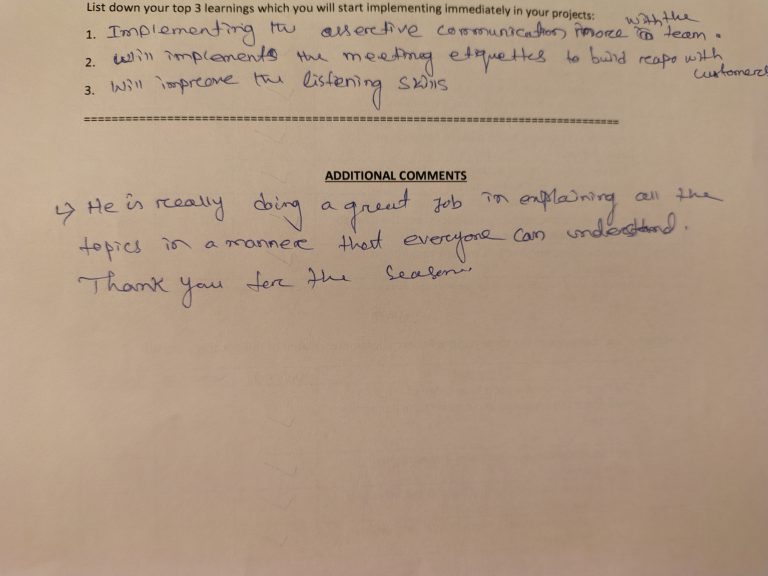 List down your top 3 learnings which you will start implementing immediately in your projects:
1. Implementing the assertive communication more with the team.
2. Will implements the meeting etiquettes to build reapo with customers
3. Will improve the listening skills
ADDITIONAL COMMENTS
→ He is really doing a great Job in explaining all the
topics in a manner that everyone can understand.
Thank you for the